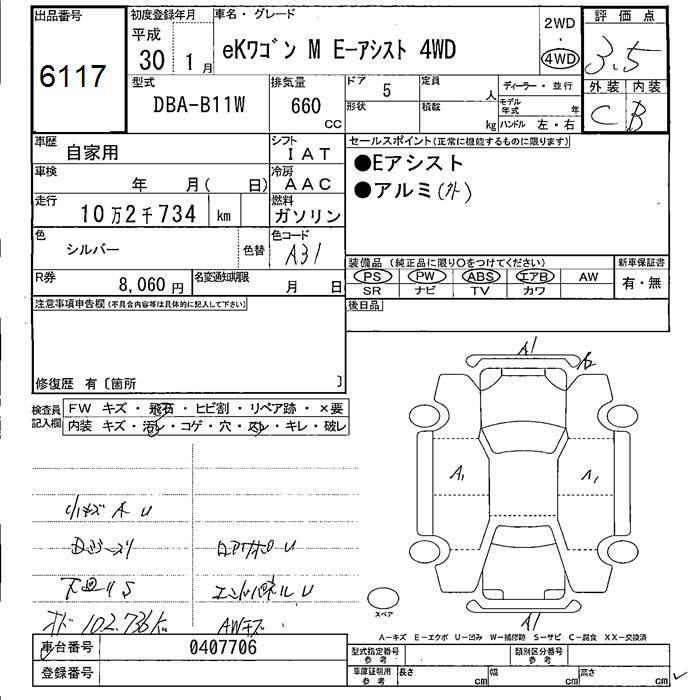 出品番号
6117
初度登録年月
平成
30 1月
車名・グレード
eKワゴン M E−アシスト 4WD
2WD
・
4WD
評価点
3.5
外装 内装
C B
型式
DBA-B11W
排気量
660
cc
ドア
5
定員
人
形状
積載
kg
ディーラー・並行
モデル年式
年
ハンドル 左・右
車歴
自家用
シフト
IAT
車検
年 月( 日)
冷房
AAC
走行
10万2千734 km
燃料
ガソリン
色
シルバー
色替
色コード
A31
R券
8,060円
名変通知期限
月 日
セールスポイント(正常に機能するものに限ります)
●Eアシスト
●アルミ(外)
装備品(純正品に限り○をつけてください)
PS PW ABS エアB AW
SR ナビ TV カワ
新車保証書
有・無
後日品
注意事項申告欄(不具合内容等は具体的に記入して下さい)
修復歴 有〔箇所 〕
検査員記入欄
FW キズ・飛石・ヒビ割・リペア跡・×要
内装 キズ・汚レ・コゲ・穴・スレ・キレ・破レ
A1
A1
A1
A1
小キズ A U
下回りS
エンドパネルU
オド102,736K
AWキズ
スペア
A−キズ E−エクボ U−凹み W−補修跡 S−サビ C−腐食 XX−交換済
車台番号
0407706
登録番号
型式指定番号
参考
類別区分番号
参考
車庫証明用
参考
長さ cm 幅 cm 高さ cm